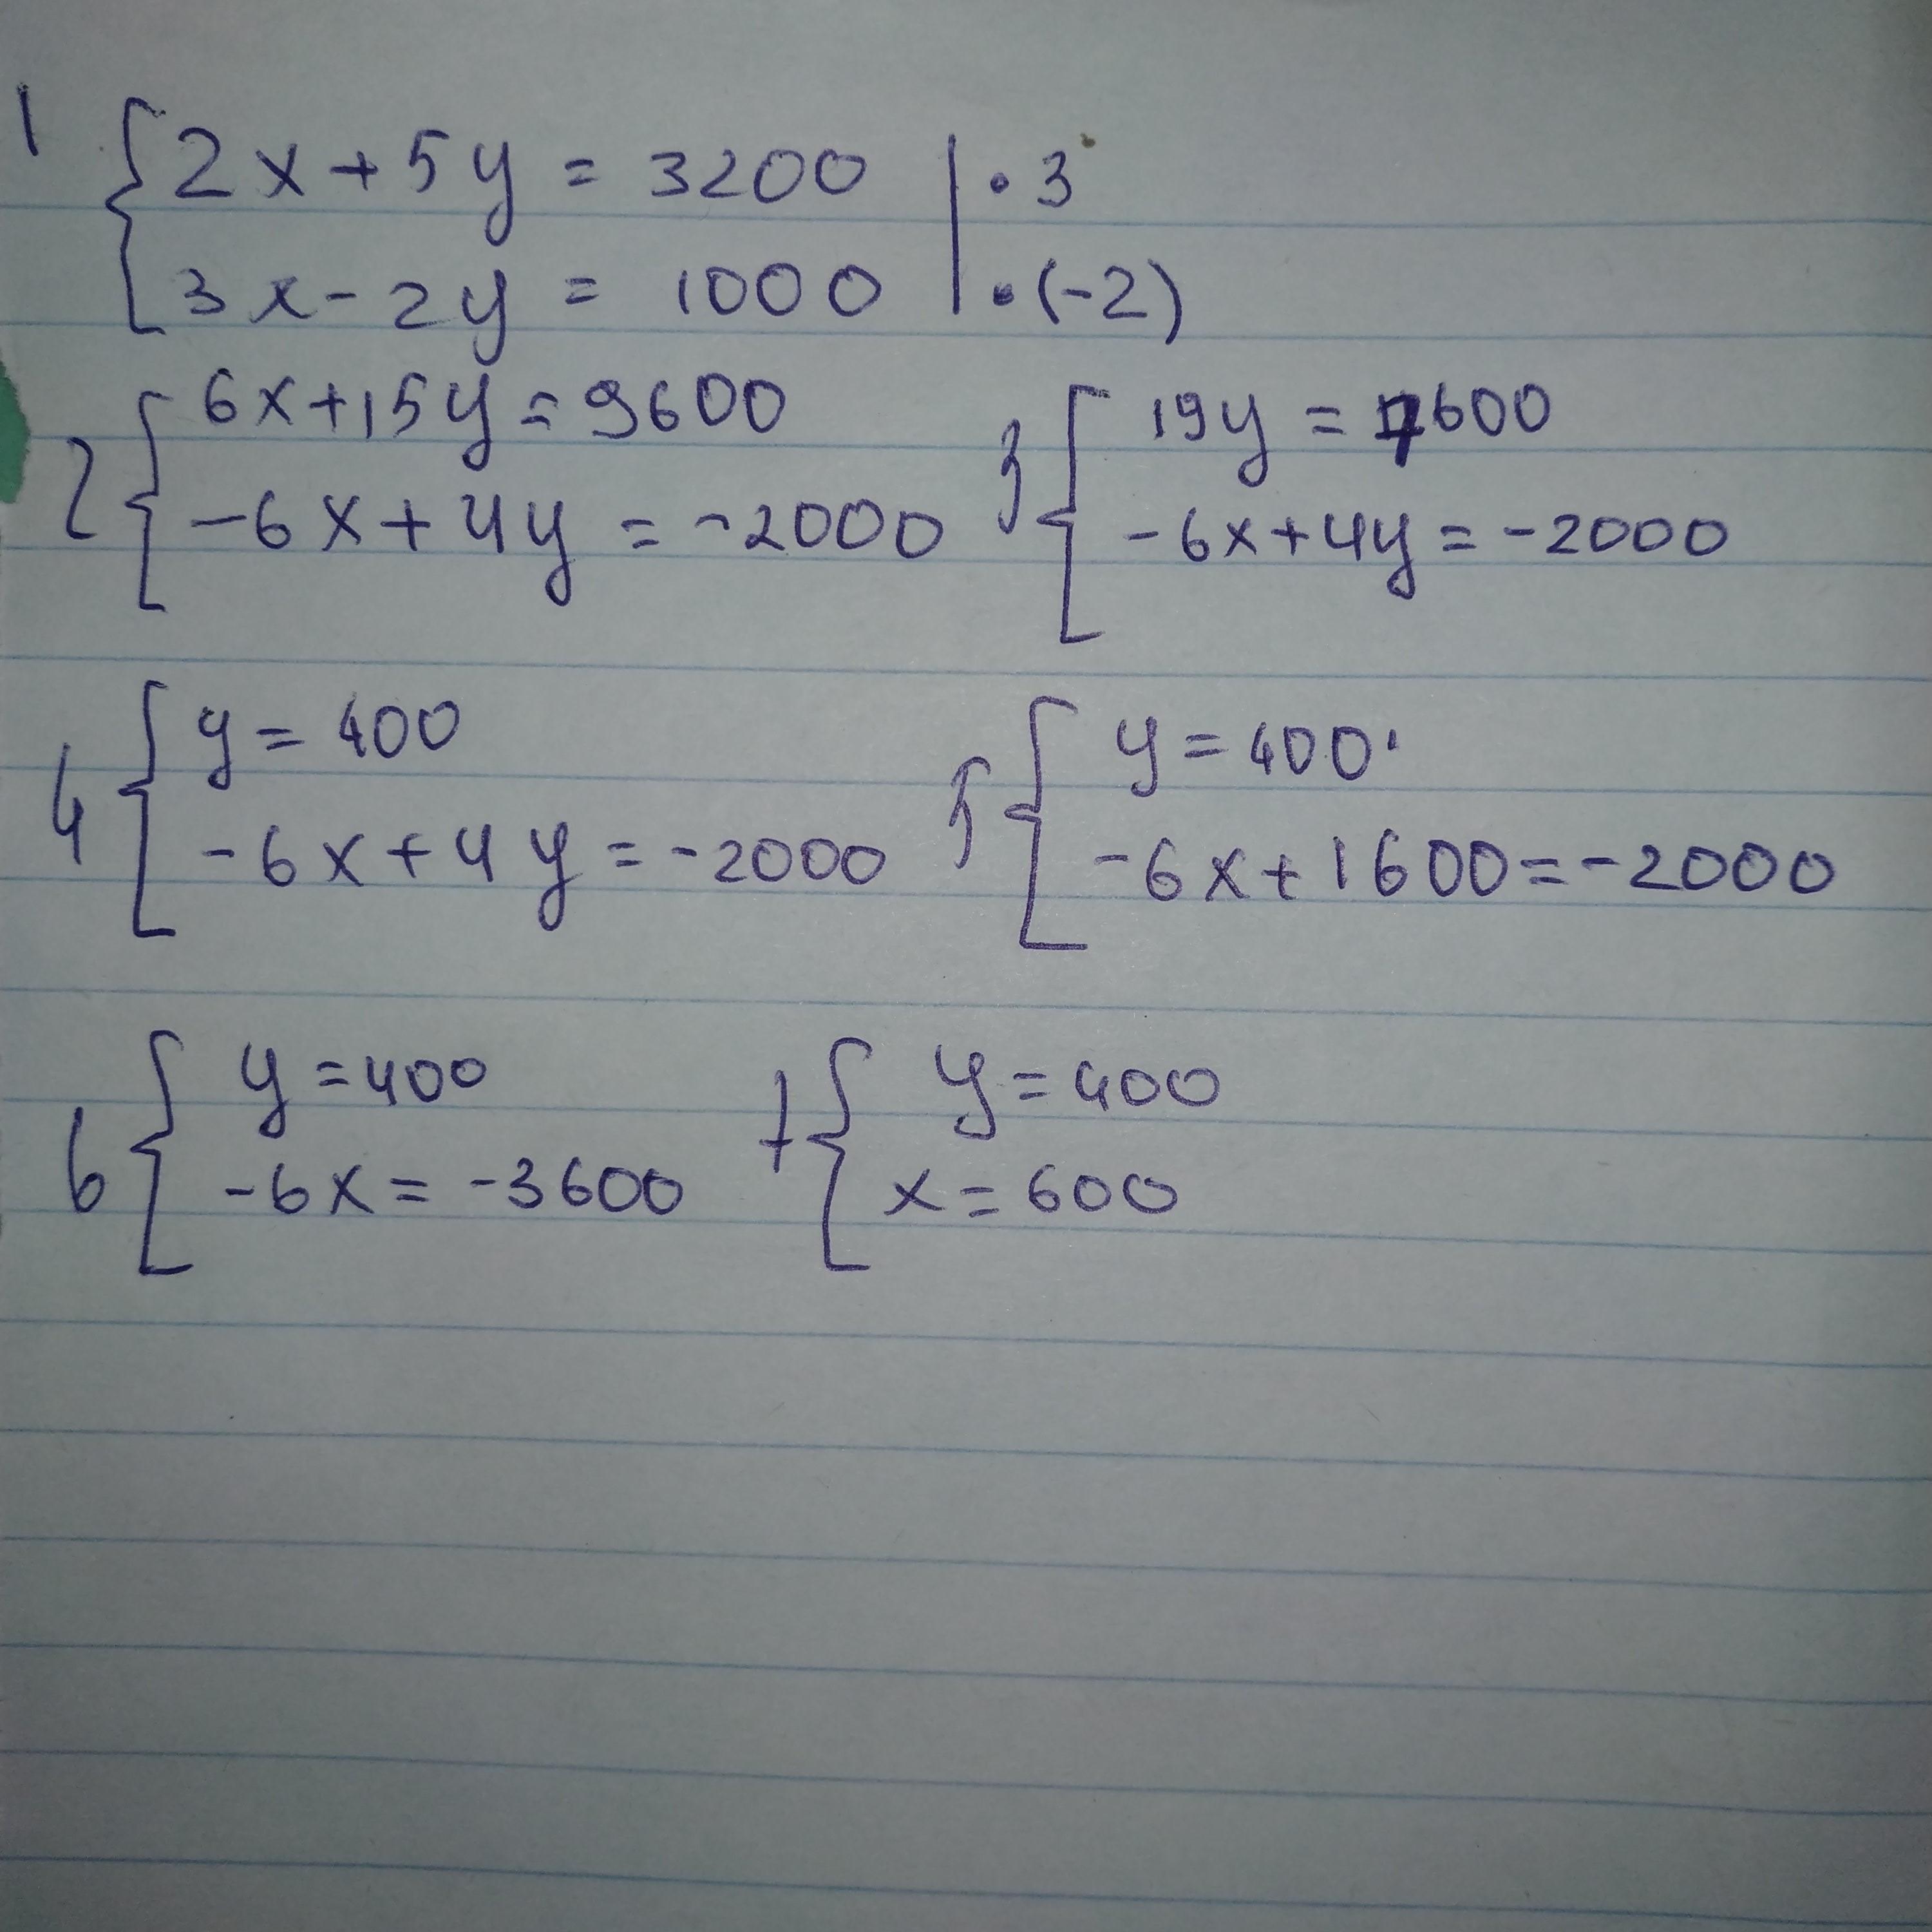 1 { 2x+5y = 3200 | • 3
3x-2y = 1000 | • (-2)
2 { 6x+15y = 9600
-6x+4y = -2000
3 { 19y = 7600
-6x+4y = -2000
4 { y = 400
-6x+4y = -2000
5 { y = 400
-6x+1600 = -2000
6 { y = 400
-6x = -3600
7 { y = 400
x = 600